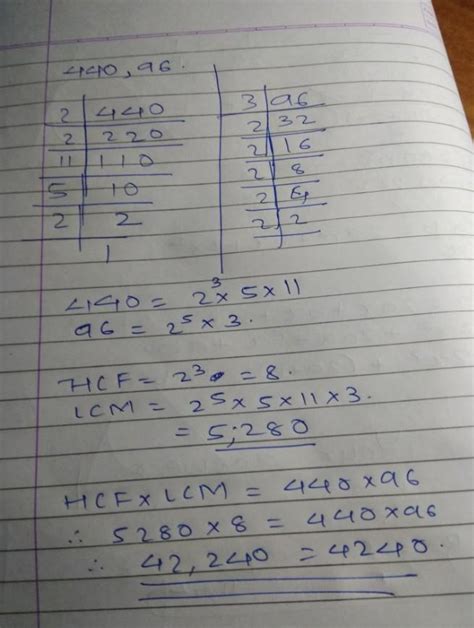 440, 96.
2 | 440
2 | 220
11 | 110
5 | 10
2 | 2
1
3 | 96
2 | 32
2 | 16
2 | 8
2 | 4
2 | 2
1
440 = 2³ × 5 × 11
96 = 2⁵ × 3.
HCF = 2³. = 8.
LCM = 2⁵ × 5 × 11 × 3.
= 5,280
HCF × LCM = 440 × 96
∴ 5280 × 8 = 440 × 96
∴ 42,240 = 4240.